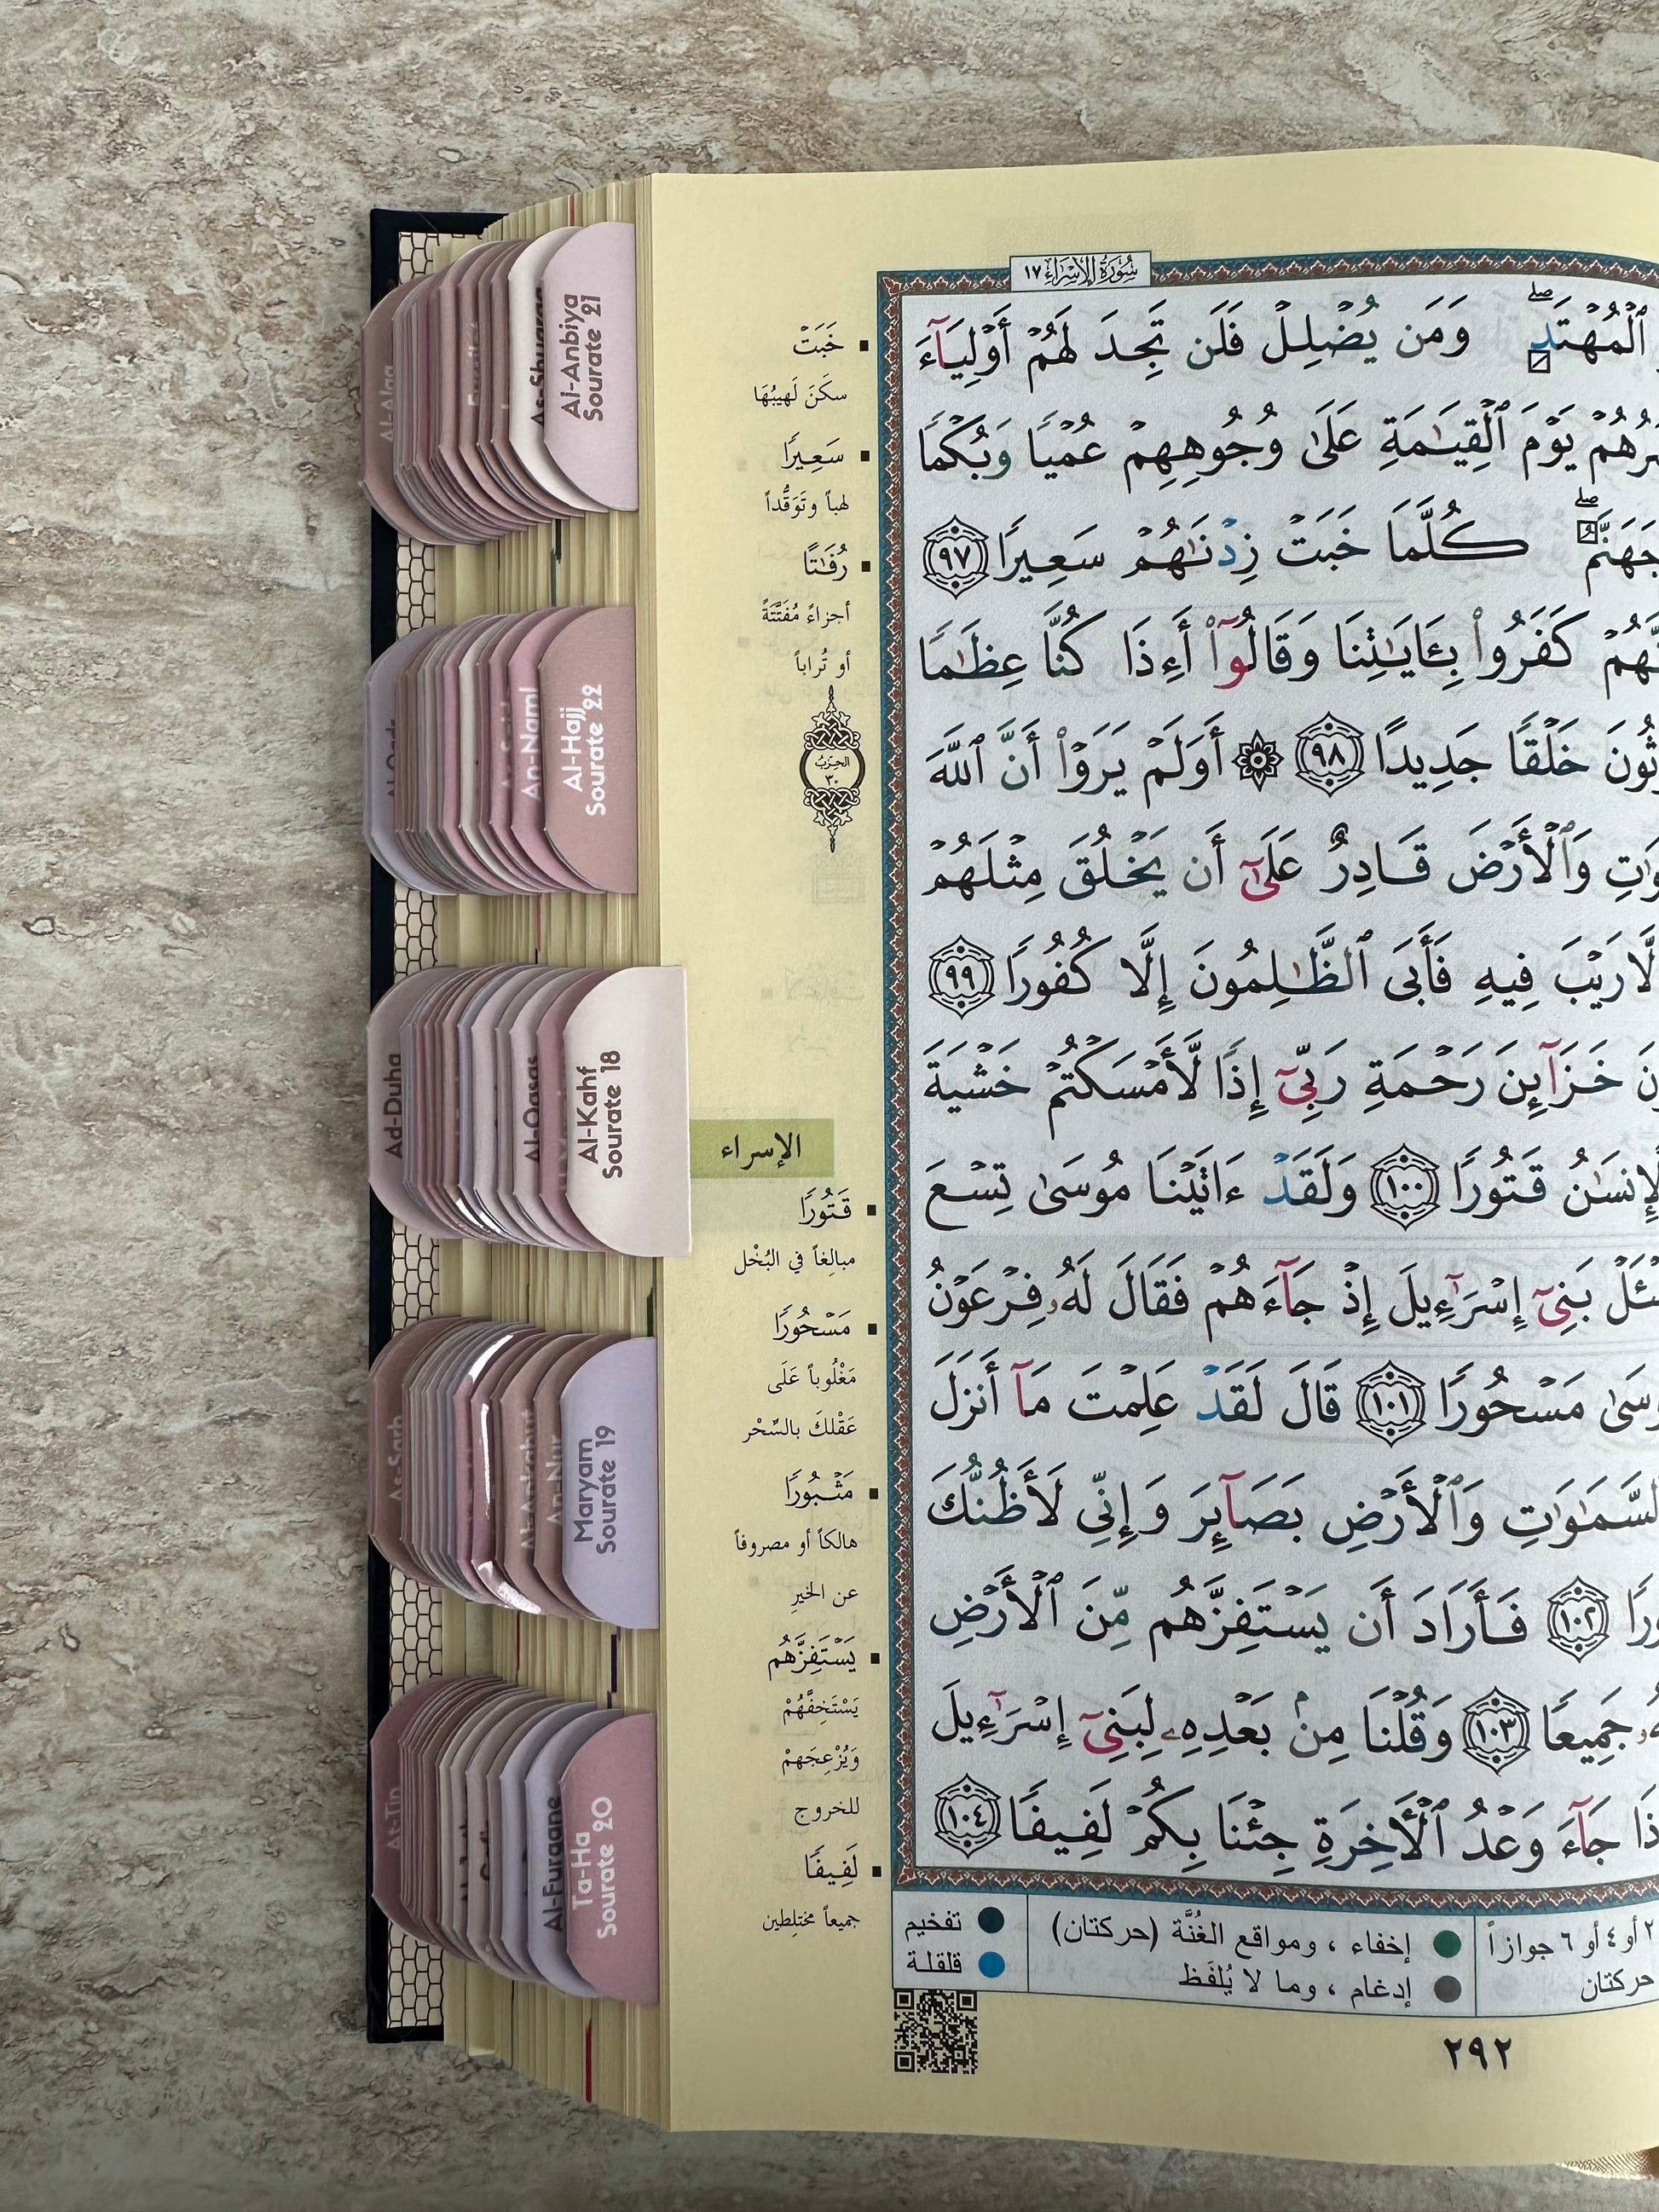 سُورَةُ الإِسْرَاء ١٧
ٱلْمُهْتَدِ ۖ وَمَن يُضْلِلْ فَلَن تَجِدَ لَهُمْ أَوْلِيَآءَ
يَوْمَ ٱلْقِيَٰمَةِ عَلَىٰ وُجُوهِهِمْ عُمْيًا وَبُكْمًا
جَهَنَّمُ ۖ كُلَّمَا خَبَتْ زِدْنَٰهُمْ سَعِيرًا ٩٧
كَفَرُوا۟ بِـَٔايَٰتِنَا وَقَالُوٓا۟ أَءِذَا كُنَّا عِظَٰمًا
خَلْقًا جَدِيدًا ٩٨ ۞ أَوَلَمْ يَرَوْا۟ أَنَّ ٱللَّهَ
وَٱلْأَرْضَ قَادِرٌ عَلَىٰٓ أَن يَخْلُقَ مِثْلَهُمْ
لَّا رَيْبَ فِيهِ فَأَبَى ٱلظَّٰلِمُونَ إِلَّا كُفُورًا ٩٩
خَزَآئِنَ رَحْمَةِ رَبِّىٓ إِذًا لَّأَمْسَكْتُمْ خَشْيَةَ
قَتُورًا ١٠٠ وَلَقَدْ ءَاتَيْنَا مُوسَىٰ تِسْعَ
بَنِىٓ إِسْرَٰٓءِيلَ إِذْ جَآءَهُمْ فَقَالَ لَهُۥ فِرْعَوْنُ
مَسْحُورًا ١٠١ قَالَ لَقَدْ عَلِمْتَ مَآ أَنزَلَ
وَٱلْأَرْضِ بَصَآئِرَ وَإِنِّى لَأَظُنُّكَ
١٠٢ فَأَرَادَ أَن يَسْتَفِزَّهُم مِّنَ ٱلْأَرْضِ
جَمِيعًا ١٠٣ وَقُلْنَا مِنۢ بَعْدِهِۦ لِبَنِىٓ إِسْرَٰٓءِيلَ
جَآءَ وَعْدُ ٱلْأَخِرَةِ جِئْنَا بِكُمْ لَفِيفًا ١٠٤
خَبَتْ
سكَنَ لَهيبُهَا
سَعِيرًا
لهباً وتَوَقُّداً
رُفَٰتًا
أجزاءً مُفَتَّتَةً
أو تُراباً
الحِزبُ
٣٠
الإسراء
قَتُورًا
مبالِغاً في البُخْل
مَسْحُورًا
مَغْلُوباً عَلَى
عَقْلكَ بالسِّحْر
مَثْبُورًا
هالكاً أو مصروفاً
عن الخيرِ
يَسْتَفِزَّهُم
يَسْتَخِفَّهُمْ
وَيُزْعِجَهمْ
للخروج
لَفِيفًا
جميعاً مختلِطين
٢ أو ٤ أو ٦ جوازاً
حركتان
إخفاء ، ومواقع الغُنَّة (حركتان)
إدغام ، وما لا يُلفَظ
تفخيم
قلقلة
٢٩٢
Al-Anbiya
Sourate 21
Al-Hajj
Sourate 22
An-Naml
Al-Kahf
Sourate 18
Al-Qasas
Ad-Duha
Maryam
Sourate 19
An-Nur
Ta-Ha
Sourate 20
Al-Furqane
At-Tin